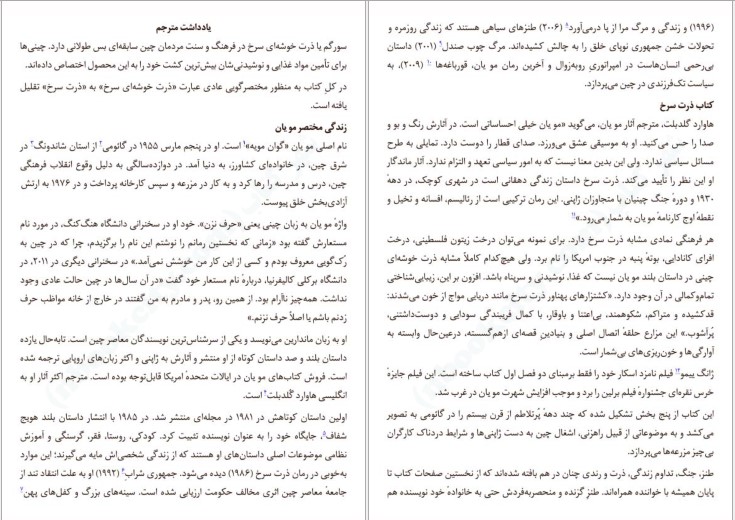 یادداشت مترجم
سورگم یا ذرت خوشه‌ای سرخ در فرهنگ و سنت مردمان چین سابقه‌ای بس طولانی دارد. چینی‌ها
برای تأمین مواد غذایی و نوشیدنی‌شان بیش‌ترین کشت خود را به این محصول اختصاص داده‌اند.
در کل کتاب به منظور مختصرگویی عادی عبارت «ذرت خوشه‌ای سرخ» به «ذرت سرخ» تقلیل
یافته است.
زندگی مختصر مو یان
نام اصلی مو یان «گوان مویه»۱ است. او در پنجم مارس ۱۹۵۵ در گائومی۲ از استان شاندونگ۳ در
شرق چین، در خانواده‌ای کشاورز، به دنیا آمد. در دوازده‌سالگی به دلیل وقوع انقلاب فرهنگی
چین، درس و مدرسه را رها کرد و به کار در مزرعه و سپس کارخانه پرداخت و در ۱۹۷۶ به ارتش
آزادی‌بخش خلق پیوست.
واژهٔ مو یان به زبان چینی یعنی «حرف نزن». خود او در سخنرانی دانشگاه هنگ‌کنگ، در مورد نام
مستعارش گفته بود «زمانی که نخستین رمانم را نوشتم این نام را برگزیدم، چرا که در چین به
رک‌گویی معروف بودم و کسی از این کار من خوشش نمی‌آمد.» در سخنرانی دیگری در ۲۰۱۱، در
دانشگاه برکلی کالیفرنیا، دربارهٔ نام مستعار خود گفت «در آن سال‌ها در چین حالت عادی وجود
نداشت. همه‌چیز ناآرام بود. از همین رو، پدر و مادرم به من گفتند در خارج از خانه مواظب حرف
زدنم باشم یا اصلاً حرف نزنم.»
او به زبان ماندارین می‌نویسد و یکی از سرشناس‌ترین نویسندگان معاصر چین است. تابه‌حال یازده
داستان بلند و صد داستان کوتاه از او منتشر و آثارش به ژاپنی و اکثر زبان‌های اروپایی ترجمه شده
است. فروش کتاب‌های مو یان در ایالات متحدهٔ امریکا قابل‌توجه بوده است. مترجم اکثر آثار او به
انگلیسی هاوارد گلدبلت۴ است.
اولین داستان کوتاهش در ۱۹۸۱ در مجله‌ای منتشر شد. در ۱۹۸۵ با انتشار داستان بلند هویج
شفاف۵، جایگاه خود را به عنوان نویسنده تثبیت کرد. کودکی، روستا، فقر، گرسنگی و آموزش
نظامی موضوعات اصلی داستان‌های او هستند که از زندگی شخصی‌اش مایه می‌گیرند؛ این موارد
به‌خوبی در رمان ذرت سرخ (۱۹۸۶) دیده می‌شود. جمهوری شراب۶ (۱۹۹۲) او به علت انتقاد تند از
جامعهٔ معاصر چین اثری مخالف حکومت ارزیابی شده است. سینه‌های بزرگ و کفل‌های پهن۷
(۱۹۹۶) و زندگی و مرگ مرا از پا درمی‌آورد۸ (۲۰۰۶) طنزهای سیاهی هستند که زندگی روزمره و
تحولات خشن جمهوری نوپای خلق را به چالش کشیده‌اند. مرگ چوب صندل۹ (۲۰۰۱) داستان
بی‌رحمی انسان‌هاست در امپراتوریِ روبه‌زوال و آخرین رمان مو یان، قورباغه‌ها۱۰ (۲۰۰۹)، به
سیاست تک‌فرزندی در چین می‌پردازد.
کتاب ذرت سرخ
هاوارد گلدبلت، مترجم آثار مو یان، می‌گوید «مو یان خیلی احساساتی است. در آثارش رنگ و بو و
صدا را حس می‌کنید. او به موسیقی عشق می‌ورزد. صدای قطار را دوست دارد. تمایلی به طرح
مسائل سیاسی ندارد. ولی این بدین معنا نیست که به امور سیاسی تعهد و التزام ندارد. آثار ماندگار
او این نظر را تأیید می‌کند. ذرت سرخ داستان زندگی دهقانی است در شهری کوچک، در دههٔ
۱۹۳۰ و دورهٔ جنگ چینیان با متجاوزان ژاپنی. این رمان ترکیبی است از رئالیسم، افسانه و تخیل و
نقطهٔ اوج کارنامهٔ مو یان به شمار می‌رود.»۱۱
هر فرهنگی نمادی مشابه ذرت سرخ دارد. برای نمونه می‌توان درخت زیتون فلسطینی، درخت
افرای کانادایی، بوتهٔ پنبه در جنوب امریکا را نام برد. ولی هیچ‌کدام کاملاً مشابه ذرت خوشه‌ای
چینی در داستان بلند مو یان نیست که غذا، نوشیدنی و سرپناه باشد. افزون بر این، زیبایی‌شناختی
تمام‌وکمالی در آن وجود دارد. «کشتزارهای پهناور ذرت سرخ مانند دریایی مواج از خون می‌شدند:
قدکشیده و متراکم، شکوهمند، بی‌اعتنا و باوقار، با کمال فریبندگی سودایی و دوست‌داشتنی،
پرآشوب.» این مزارع حلقهٔ اتصال اصلی و بنیادینِ قصه‌ای ازهم‌گسسته، درعین‌حال وابسته به
آوارگی‌ها و خون‌ریزی‌های بی‌شمار است.
ژانگ ییمو۱۲ فیلم نامزد اسکار خود را فقط برمبنای دو فصل اول کتاب ساخته است. این فیلم جایزهٔ
خرس نقره‌ای جشنوارهٔ فیلم برلین را برد و موجب افزایش شهرت مو یان در غرب شد.
این کتاب از پنج بخش تشکیل شده که چند دههٔ پرتلاطم از قرن بیستم را در گائومی به تصویر
می‌کشد و به موضوعاتی از قبیل راهزنی، اشغال چین به دست ژاپنی‌ها و شرایط دردناک کارگران
بی‌چیز مزرعه‌ها می‌پردازد.
طنز، جنگ، تداوم زندگی، ذرت و رندی چنان در هم بافته شده‌اند که از نخستین صفحات کتاب تا
پایان همیشه با خواننده همراه‌اند. طنزِ گزنده و منحصربه‌فردش حتی به خانوادهٔ خود نویسنده هم